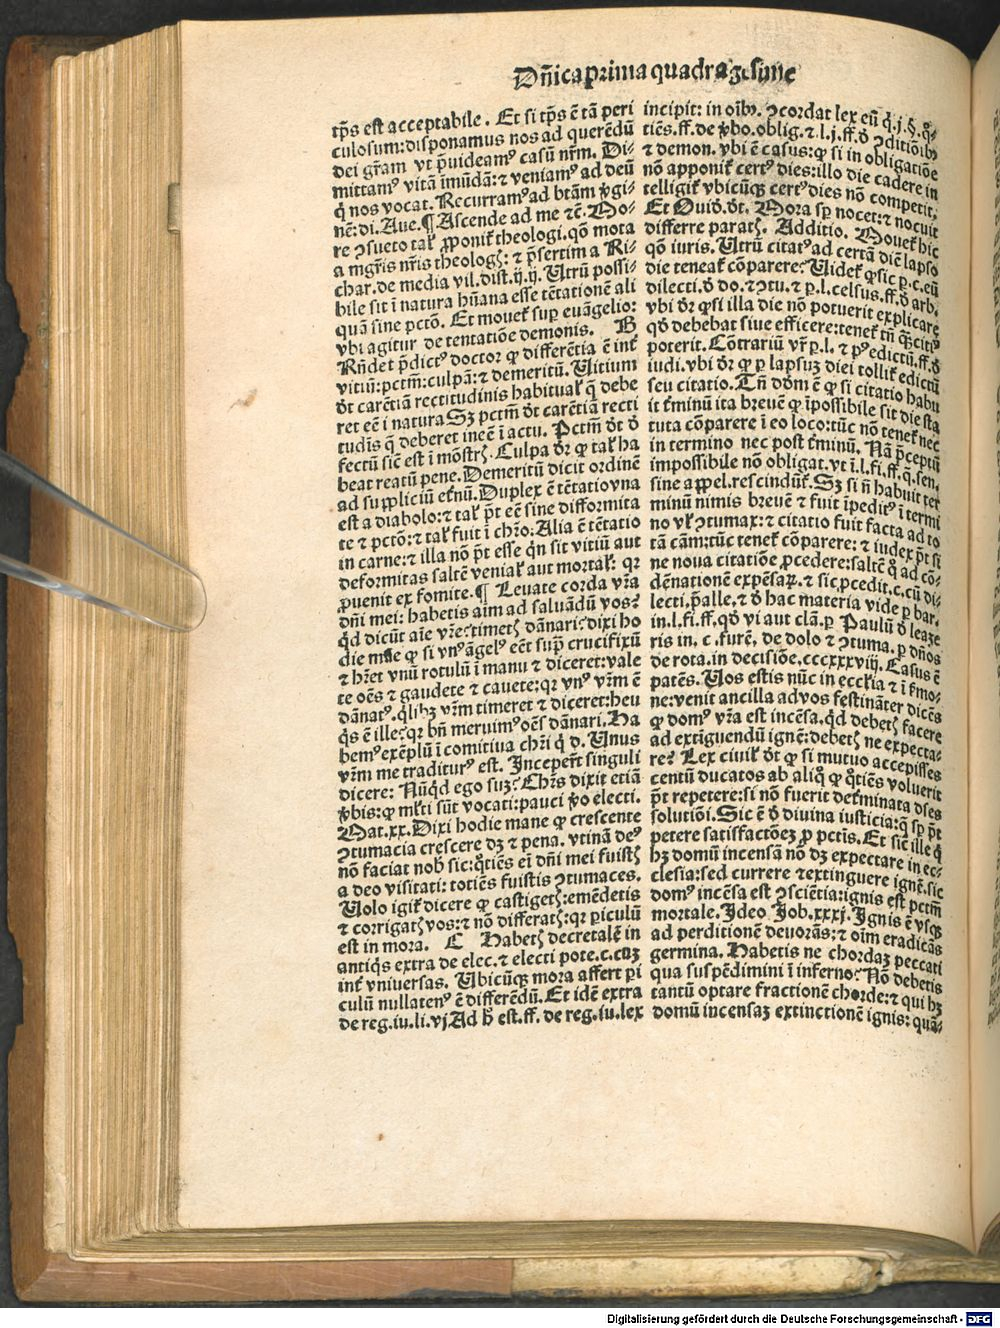 Dñica prima quadragesime
tp̃s est acceptabile. Et si tp̃s ẽ tã peri
culosum: disponamus nos ad querẽdũ
dei gr̃am vt p̃uideamꝰ casũ nr̃m. Di-
mittamꝰ vitã ĩmũdã: ⁊ veniamꝰ ad deũ
q̃ nos vocat. Recurramꝰ ad btãm v̾gi-
nẽ: di. Aue. ¶ Ascende ad me ⁊c̃. Mo-
re ꝯsueto tal̃r ꝓponit̃ theologi. qõ mota
a mgr̃is nr̃is theologꝭ: ⁊ p̃sertim a Ri-
char. de media vil. dist. ij. ij. Utrũ possi-
bile sit ĩ natura hũana esse tẽtationẽ ali
quã sine pctõ. Et mouet̃ suꝑ euãgelio:
vbi agitur de tentatiõe demonis. B
Rñdet p̃dictꝰ doctor ꝙ differẽtia ẽ int̃
vitiũ: pctm̃: culpã: ⁊ demeritũ. Uitium
dt̃ carẽtiã rectitudinis habitual̃ q̃ debe
ret eẽ ĩ natura Sꝫ pctm̃ dt̃ carẽtiã recti
tudĩs q̃ deberet ineẽ ĩ actu. Pctm̃ dt̃ d̾
fectũ sic̃ est ĩ mõstrꝭ. Culpa dr̃ ꝙ tal̃r ha
beat reatũ pene. Demeritũ dicit ordinẽ
ad suppliciũ et̃nũ. Duplex ẽ tẽtatio vna
est a diabolo: ⁊ tal̃ p̃t eẽ sine difformita
te ⁊ pctõ: ⁊ tal̃ fuit ĩ chr̃o. Alia ẽ tẽtatio
in carne: ⁊ illa nõ p̃t esse q̃n sit vitiũ aut
deformitas saltẽ venial̃ aut mortal̃: qꝛ
ꝓuenit ex fomite. ¶ Leuate corda vr̃a
dñi mei: habetis aĩam ad saluãdũ vos?
q̃d dicũt aĩe vr̃e: timetꝭ dãnari: dixi ho
die mae ꝙ si vnꝰ ãgelꝰ eẽt sup̃ crucifixũ
⁊ hr̃et vnũ rotulũ ĩ manu ⁊ diceret: vale
te oẽs ⁊ gaudete ⁊ cauete: qꝛ vnꝰ vr̃m ẽ
dãnatꝰ. q̃libꝫ vr̃m timeret ⁊ diceret: heu
q̃s ẽ ille: qꝛ bñ meruimꝰ oẽs dãnari. Ha
bemꝰ exẽplũ ĩ comitiua chr̃i q̃ d. Unus
vr̃m me traditurꝰ est. Incepert̃ singuli
dicere: Nũq̃d ego suꝫ? Chr̃s dixit etiã
v̾bis: ꝙ ml̃ti sũt vocati: pauci v̾o electi.
Mat. xx. Dixi hodie mane ꝙ crescente
ꝯtumacia crescere dꝫ ⁊ pena. vtinã deꝰ
nõ faciat nob̃ sic: q̃tiẽs eĩ dñi mei fuistꝭ
a deo visitati: totiẽs fuistis ꝯtumaces.
Uolo igit̃ dicere ꝙ castigetꝭ: emẽdetis
⁊ corrigatꝭ vos: ⁊ nõ differatꝭ: qꝛ ꝑiculũ
est in mora. C Habetꝭ decretalẽ in
antiq̃s extra de elec. ⁊ electi pote. c. cuꝫ
int̃ vniuersas. Ubicũqꝫ mora affert ꝑi
culũ nullatenꝰ ẽ differẽdũ. Et idẽ extra
de reg. iu. li. vj Ad h̃ est. ff. de reg. iu. lex
incipit: in oĩbꝰ. ꝯcordat lex eũ q̃. j. §. q̃-
tiẽs. ff. de v̾bo. oblig. ⁊ l. j. ff. d̾ ꝯditiõibꝰ
⁊ demon. vbi ẽ casus: ꝙ si in obligatiõe
nõ apponit̃ certꝰ dies: illo die cadere in
telligit̃ vbicũqꝫ certꝰ dies nõ competit.
Et Ouid. dt̃. Mora sp̃ nocet: ⁊ nocuit
differre paratꝭ. Additio. Mouet̃ hic
qõ iuris. Utrũ citatꝰ ad certã diẽ lapso
die teneat̃ cõparere? Uidet̃ ꝙ sic ꝑ. c. eũ
dilecti. d̾ do. ⁊ ꝯtu. ⁊ ꝑ. l. celsus. ff. d̾ arb.
vbi dr̃ ꝙ si illa die nõ potuerit explicare
qd̾ debebat siue efficere: tenet̃ tñ q̃ꝫcitiꝰ
poterit. Cõtrariũ vr̃ ꝑ. l. ⁊ pꝰ edictũ. ff. d̾
iudi. vbi dr̃ ꝙ ꝑ lapsuꝫ diei tollit̃ edictũ
seu citatio. Tñ dõm ẽ ꝙ si citatio habu
it t̾minũ ita breuẽ ꝙ ĩpossibile sit die sta
tuta cõparere ĩ eo loco: tũc nõ tenet̃ nec
in termino nec post t̾minũ. Nã p̃ceptũ
impossibile nõ obligat. vt ĩ. l. fi. ff. q̃. sen.
sine appel. rescindũt̃. Sꝫ si ñ habuit ter
minũ nimis breuẽ ⁊ fuit ĩpeditꝰ ĩ termi
no vl̃ ꝯtumax: ⁊ citatio fuit facta ad to
tã cãm: tũc tenet̃ cõparere: ⁊ iudex p̃t si
ne noua citatiõe ꝓcedere: saltẽ q̃ ad cõ-
dẽnationẽ expẽsaꝝ. ⁊ sic ꝓcedit. c. cũ di-
lecti. p̃alle. ⁊ d̾ hac materia vide ꝑ bar.
in. l. fi. ff. qd̾ vi aut clã. ꝑ Paulũ d̾ leaze
ris in. c. furẽ. de dolo ⁊ ꝯtuma. ꝑ dños
de rota. in decisiõe. cccxxxviij. Casus ẽ
patẽs. Uos estis nũc in eccl̃ia ⁊ ĩ f̾mo-
ne: venit ancilla ad vos festinãter dicẽs
ꝙ domꝰ vr̃a est incẽsa. q̃d debetꝭ facere
ad extĩguendũ ignẽ: debetꝭ ne expecta-
re? Lex ciuil̃ dt̃ ꝙ si mutuo accepisses
centũ ducatos ab aliq̃ ꝙ q̃tiẽs voluerit
p̃t repetere: si nõ fuerit det̾minata dies
solutiõi. Sic ẽ d̾ diuina iusticia: q̃ sp̃ p̃t
petere satisfactõeꝫ ꝓ pctĩs. Et sic̃ ille q̃
hꝫ domũ incensã nõ dꝫ expectare in ec-
clesia: sed currere ⁊ extinguere ignẽ. sic
domꝰ incẽsa est ꝯsciẽtia: ignis est pctm̃
mortale. Ideo Job. xxxj. Ignis ẽ vsqꝫ
ad perditionẽ deuorãs: ⁊ oĩm eradicãs
germina. Habetis ne chordaꝫ peccati
qua suspẽdimini ĩ inferno? Nõ debetis
tantũ optare fractionẽ chorde: ⁊ qui hꝫ
domũ incensaꝫ extinctionẽ ignis: quã-
Digitalisierung gefördert durch die Deutsche Forschungsgemeinschaft - DFG